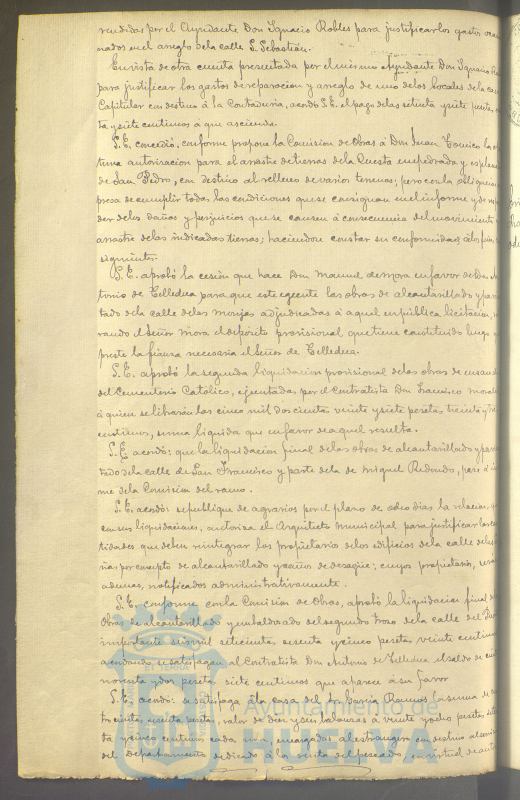 rendidas por el Ayudante Don Ignacio Robles para justificar los gastos
nados en el arreglo de la calle S. Sebastián.
En vista de otra cuenta presentada por el mismo Ayudante Don Ignacio
para justificar los gastos de reparacion y arreglo de uno de los locales de la casa
Capitular con destino á la Contaduria, acordó S.E. el pago de las setenta y siete pesetas
ta y siete centimos á que asciende.
S.E. concedió, conforme propone la Comision de Obras á Don Juan
tuna autorizacion para el arrastre de tierras de la Cuesta empedrada y
de San Pedro, con destino al relleno de varios terrenos; pero con la obligacion
presa de cumplir todas las condiciones que se consignan en el informe y de
der de los daños y perjuicios que se causen á consecuencia del movimiento
arrastre de las indicadas tierras; haciendo constar su conformidad, á los fines
siguientes.
S.E. aprobó la cesion que hace Don Manuel de Mora en favor de Don An
tonio de Tellechea para que este ejecute las obras de alcantarillado y
tado de la calle de las Monjas adjudicadas á aquel en publica licitacion,
rando el Señor Mora el depósito provisional que tiene constituido luego
preste la fianza necesaria el Señor de Tellechea.
S.E. aprobó la segunda liquidacion provisional de las obras de ensanche
del Cementerio Católico, ejecutadas por el contratista Don Francisco
á quien se librarán las cinco mil dos cientas veinte y siete pesetas treinta y
centimos, suma liquida que en favor de aquel resulta.
S.E. acordó: que la liquidacion final de las obras de alcantarillado y
tado de la calle de San Francisco y parte de la de Miguel Redondo, pase á in
me de la Comision del ramo.
S.E. acordó: se publique de agravios por el plazo de ocho dias la relacion,
con sus liquidaciones, autoriza el Arquitecto Municipal para justificar las can
tidades que deben reintegrar los propietarios de los edificios de la calle
por concepto de alcantarillado y caños de desagüe; cuyos propietarios, serán
ademas, notificados administrativamente.
S.E. conforme con la Comision de Obras, aprobó la liquidacion final de
Obras de alcantarillado y embaldosado del segundo trozo de la calle del
importante seis mil setecientas sesenta y cinco pesetas veinte centimos
acordando se satisfagan al Contratista Don Antonio de Tellechea el saldo de
noventa y dos pesetas siete centimos que aparece á su favor.
S.E. acordó: se satisfaga á la casa del Sr. Garcia Ramos la suma de
pesetas, valor de diez y seis balanzas á veinte y ocho pesetas
ta y cinco centimos cada una, encargadas al estrangero con destino al servicio
del Departamento dedicado á la venta del pescado, en virtud de
Ayuntamiento de
HUELVA